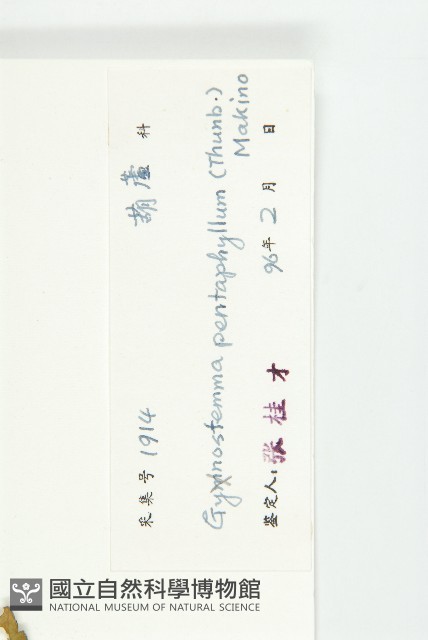 采集号 1914 葫蘆 科
Gynostemma pentaphyllum (Thunb.)
Makino
鉴定人: 張桂才 96年 2月 日
國立自然科學博物館
NATIONAL MUSEUM OF NATURAL SCIENCE